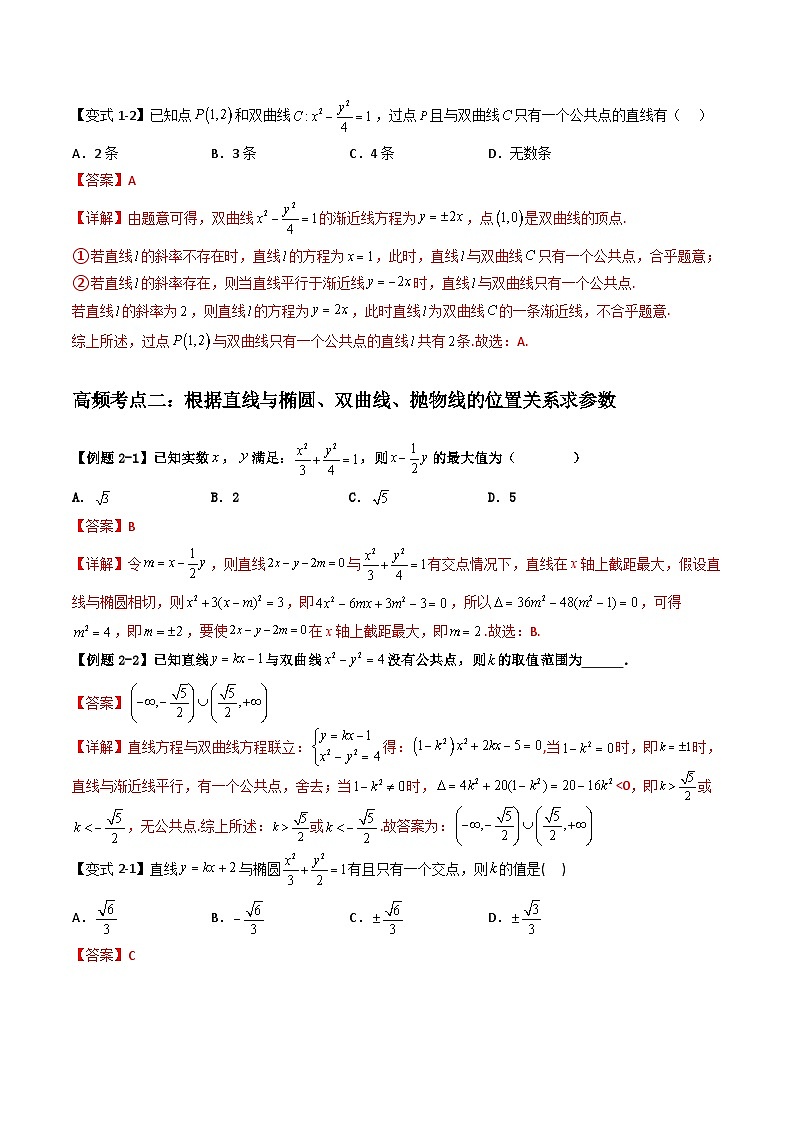 【变式 1-2】已知点 P(1,2) 和双曲线 C : x² − y²/4 = 1，过点 P 且与双曲线 C 只有一个公共点的直线有（　）
A．2 条　B．3 条　C．4 条　D．无数条
【答案】A
【详解】由题意可得，双曲线 x² − y²/4 = 1 的渐近线方程为 y = ±2x，点 (1,0) 是双曲线的顶点.
①若直线 l 的斜率不存在时，直线 l 的方程为 x = 1，此时，直线 l 与双曲线 C 只有一个公共点，合乎题意；
②若直线 l 的斜率存在，则当直线平行于渐近线 y = −2x 时，直线 l 与双曲线只有一个公共点.
若直线 l 的斜率为 2，则直线 l 的方程为 y = 2x，此时直线 l 为双曲线 C 的一条渐近线，不合乎题意.
综上所述，过点 P(1,2) 与双曲线只有一个公共点的直线 l 共有 2 条.故选：A.
高频考点二：根据直线与椭圆、双曲线、抛物线的位置关系求参数
【例题 2-1】已知实数 x，y 满足：x²/3 + y²/4 = 1，则 x − 1/2 y 的最大值为（　）
A．√3　B．2　C．√5　D．5
【答案】B
【详解】令 m = x − 1/2 y，则直线 2x − y − 2m = 0 与 x²/3 + y²/4 = 1 有交点情况下，直线在 x 轴上截距最大，假设直
线与椭圆相切，则 x² + 3(x − m)² = 3，即 4x² − 6mx + 3m² − 3 = 0，所以 Δ = 36m² − 48(m² − 1) = 0，可得
m² = 4，即 m = ±2，要使 2x − y − 2m = 0 在 x 轴上截距最大，即 m = 2.故选：B.
【例题 2-2】已知直线 y = kx − 1 与双曲线 x² − y² = 4 没有公共点，则 k 的取值范围为______．
【答案】(−∞, −√5/2) ∪ (√5/2, +∞)
【详解】直线方程与双曲线方程联立：{y = kx − 1 x² − y² = 4 得：(1 − k²)x² + 2kx − 5 = 0,当 1 − k² = 0 时，即 k = ±1 时，
直线与渐近线平行，有一个公共点，舍去；当 1 − k² ≠ 0 时，Δ = 4k² + 20(1 − k²) = 20 − 16k² <0，即 k > √5/2 或
k < −√5/2，无公共点.综上所述：k > √5/2 或 k < −√5/2.故答案为：(−∞, −√5/2) ∪ (√5/2, +∞)
【变式 2-1】直线 y = kx + 2 与椭圆 x²/3 + y²/2 = 1 有且只有一个交点，则 k 的值是(　)
A．√6/3　B．−√6/3　C．±√6/3　D．±√3/3
【答案】C